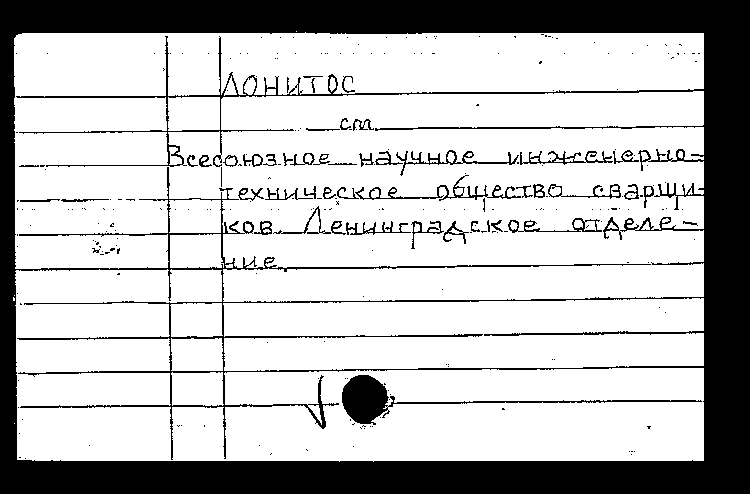 ЛОНИТОС
см.
Всесоюзное научное инженерно-
техническое общество сварщи-
ков. Ленинградское отделе-
ние.